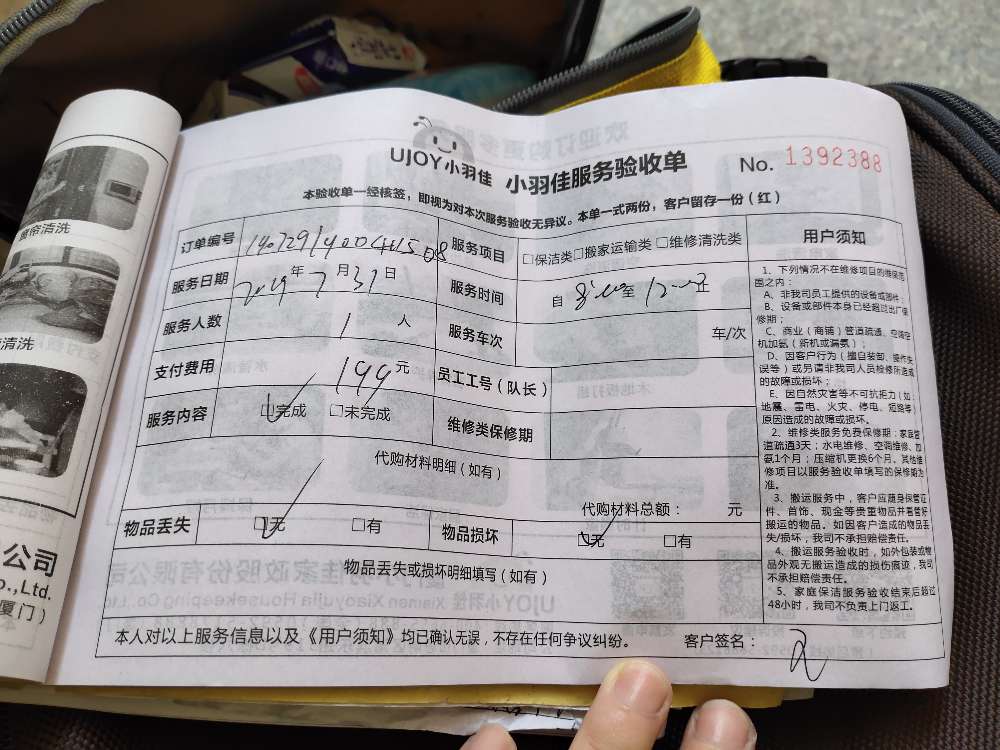 UJOY小羽佳 小羽佳服务验收单 No. 1392388
本验收单一经核签，即视为对本次服务验收无异议。本单一式两份，客户留存一份（红）
订单编号 服务项目 □保洁类□搬家运输类□维修清洗类
服务日期 2019年7月31日 服务时间 自 至 止
服务人数 1 人 服务车次 车/次
支付费用 199元 员工工号（队长）
服务内容 □完成 □未完成 维修类保修期
代购材料明细（如有）
代购材料总额： 元
物品丢失 □无 □有 物品损坏 □无 □有
物品丢失或损坏明细填写（如有）
本人对以上服务信息以及《用户须知》均已确认无误，不存在任何争议纠纷。 客户签名：
用户须知
1、下列情况不在维修项目的维保范
围之内：
A、非我司员工提供的设备或部件；
B、设备或部件本身已经超过出厂保
修期；
C、商业（商铺）管道疏通、空调空
机加氨（新机或漏氨）；
D、因客户行为（擅自装卸、操作失
误等）或另请非我司人员检修所造成
的故障或损坏；
E、因自然灾害等不可抗拒力（如：
地震、雷电、火灾、停电、短路等）
原因造成的故障或损坏。
2、维修类服务免费保修期：家庭管
道疏通3天；水电维修、空调维修、加
氨1个月；压缩机更换6个月。其他维
修项目以服务验收单填写的保修期为
准。
3、搬运服务中，客户应随身保管证
件、首饰、现金等贵重物品并看管好
搬运的物品。如因客户造成的物品丢
失/损坏，我司不承担赔偿责任。
4、搬运服务验收时，如外包装或物
品外观无搬运造成的损伤痕迹，我司
不承担赔偿责任。
5、家庭保洁服务验收结束后超过
48小时，我司不负责上门返工。
窗帘清洗
清洗
公司
o.,Ltd.
厦门）